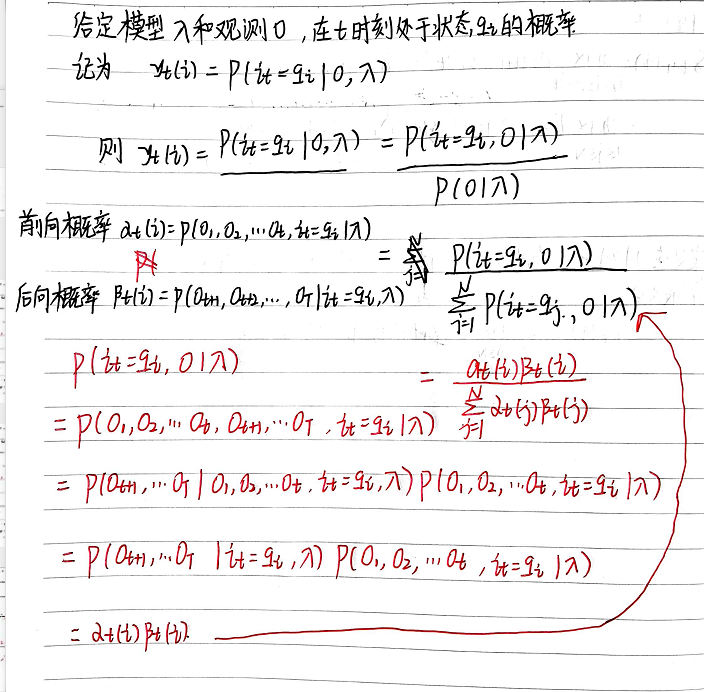 给定模型λ和观测O,在t时刻处于状态qi的概率
记为 γt(i) = P(it=qi|O,λ)
则 γt(i) = P(it=qi|O,λ) = P(it=qi,O|λ) / P(O|λ)
前向概率 αt(i)=P(O1,O2,…Ot,it=qi|λ)
= P(it=qi,O|λ) / ∑j=1N P(it=qj,O|λ)
后向概率 βt(i)=P(Ot+1,Ot+2,…,OT|it=qi,λ)
P(it=qi,O|λ)
= αt(i)βt(i) / ∑j=1N αt(j)βt(j)
= P(O1,O2,…Ot,Ot+1,…OT,it=qi|λ)
= P(Ot+1,…OT|O1,O2,…Ot,it=qi,λ)P(O1,O2,…Ot,it=qi|λ)
= P(Ot+1,…OT|it=qi,λ) P(O1,O2,…Ot,it=qi|λ)
= αt(i)βt(i).